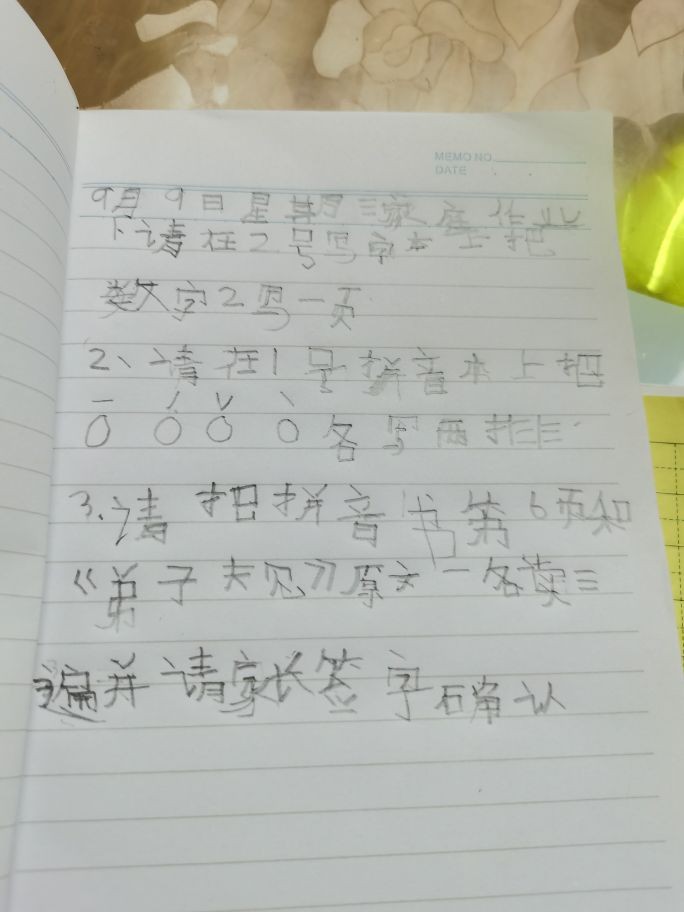 MEMO NO.
DATE
9月9日星期三家庭作业
1、请在2号写字本上把
数字2写一页
2、请在1号拼音本上把
ō ó ǒ ò各写两排
3、请把拼音书第6页和
《弟子规》原文一各读三
遍并请家长签字确认